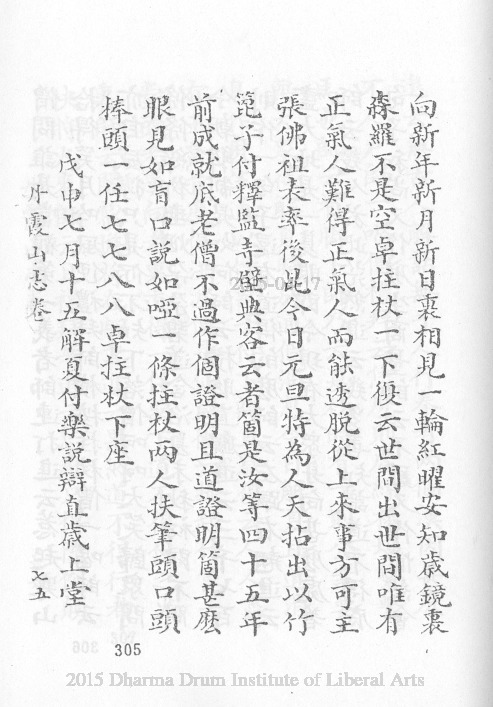 向新年新月新日裏相見一輪紅曜安知歲鏡裏
森羅不是空卓拄杖一下復云世間出世間唯有
正氣人難得正氣人而能透脫從上來事方可主
張佛祖表率後昆今日元旦特為人天拈出以竹
篦子付釋監寺璧典客云者箇是汝等四十五年
前成就底老僧不過作個證明且道證明箇甚麼
眼見如盲口說如啞一條拄杖兩人扶筆頭口頭
棒頭一任七七八八卓拄杖下座
戊申七月十五解夏付樂說辯直歲上堂
丹霞山志卷
七五
305
306
2015 Dharma Drum Institute of Liberal Arts